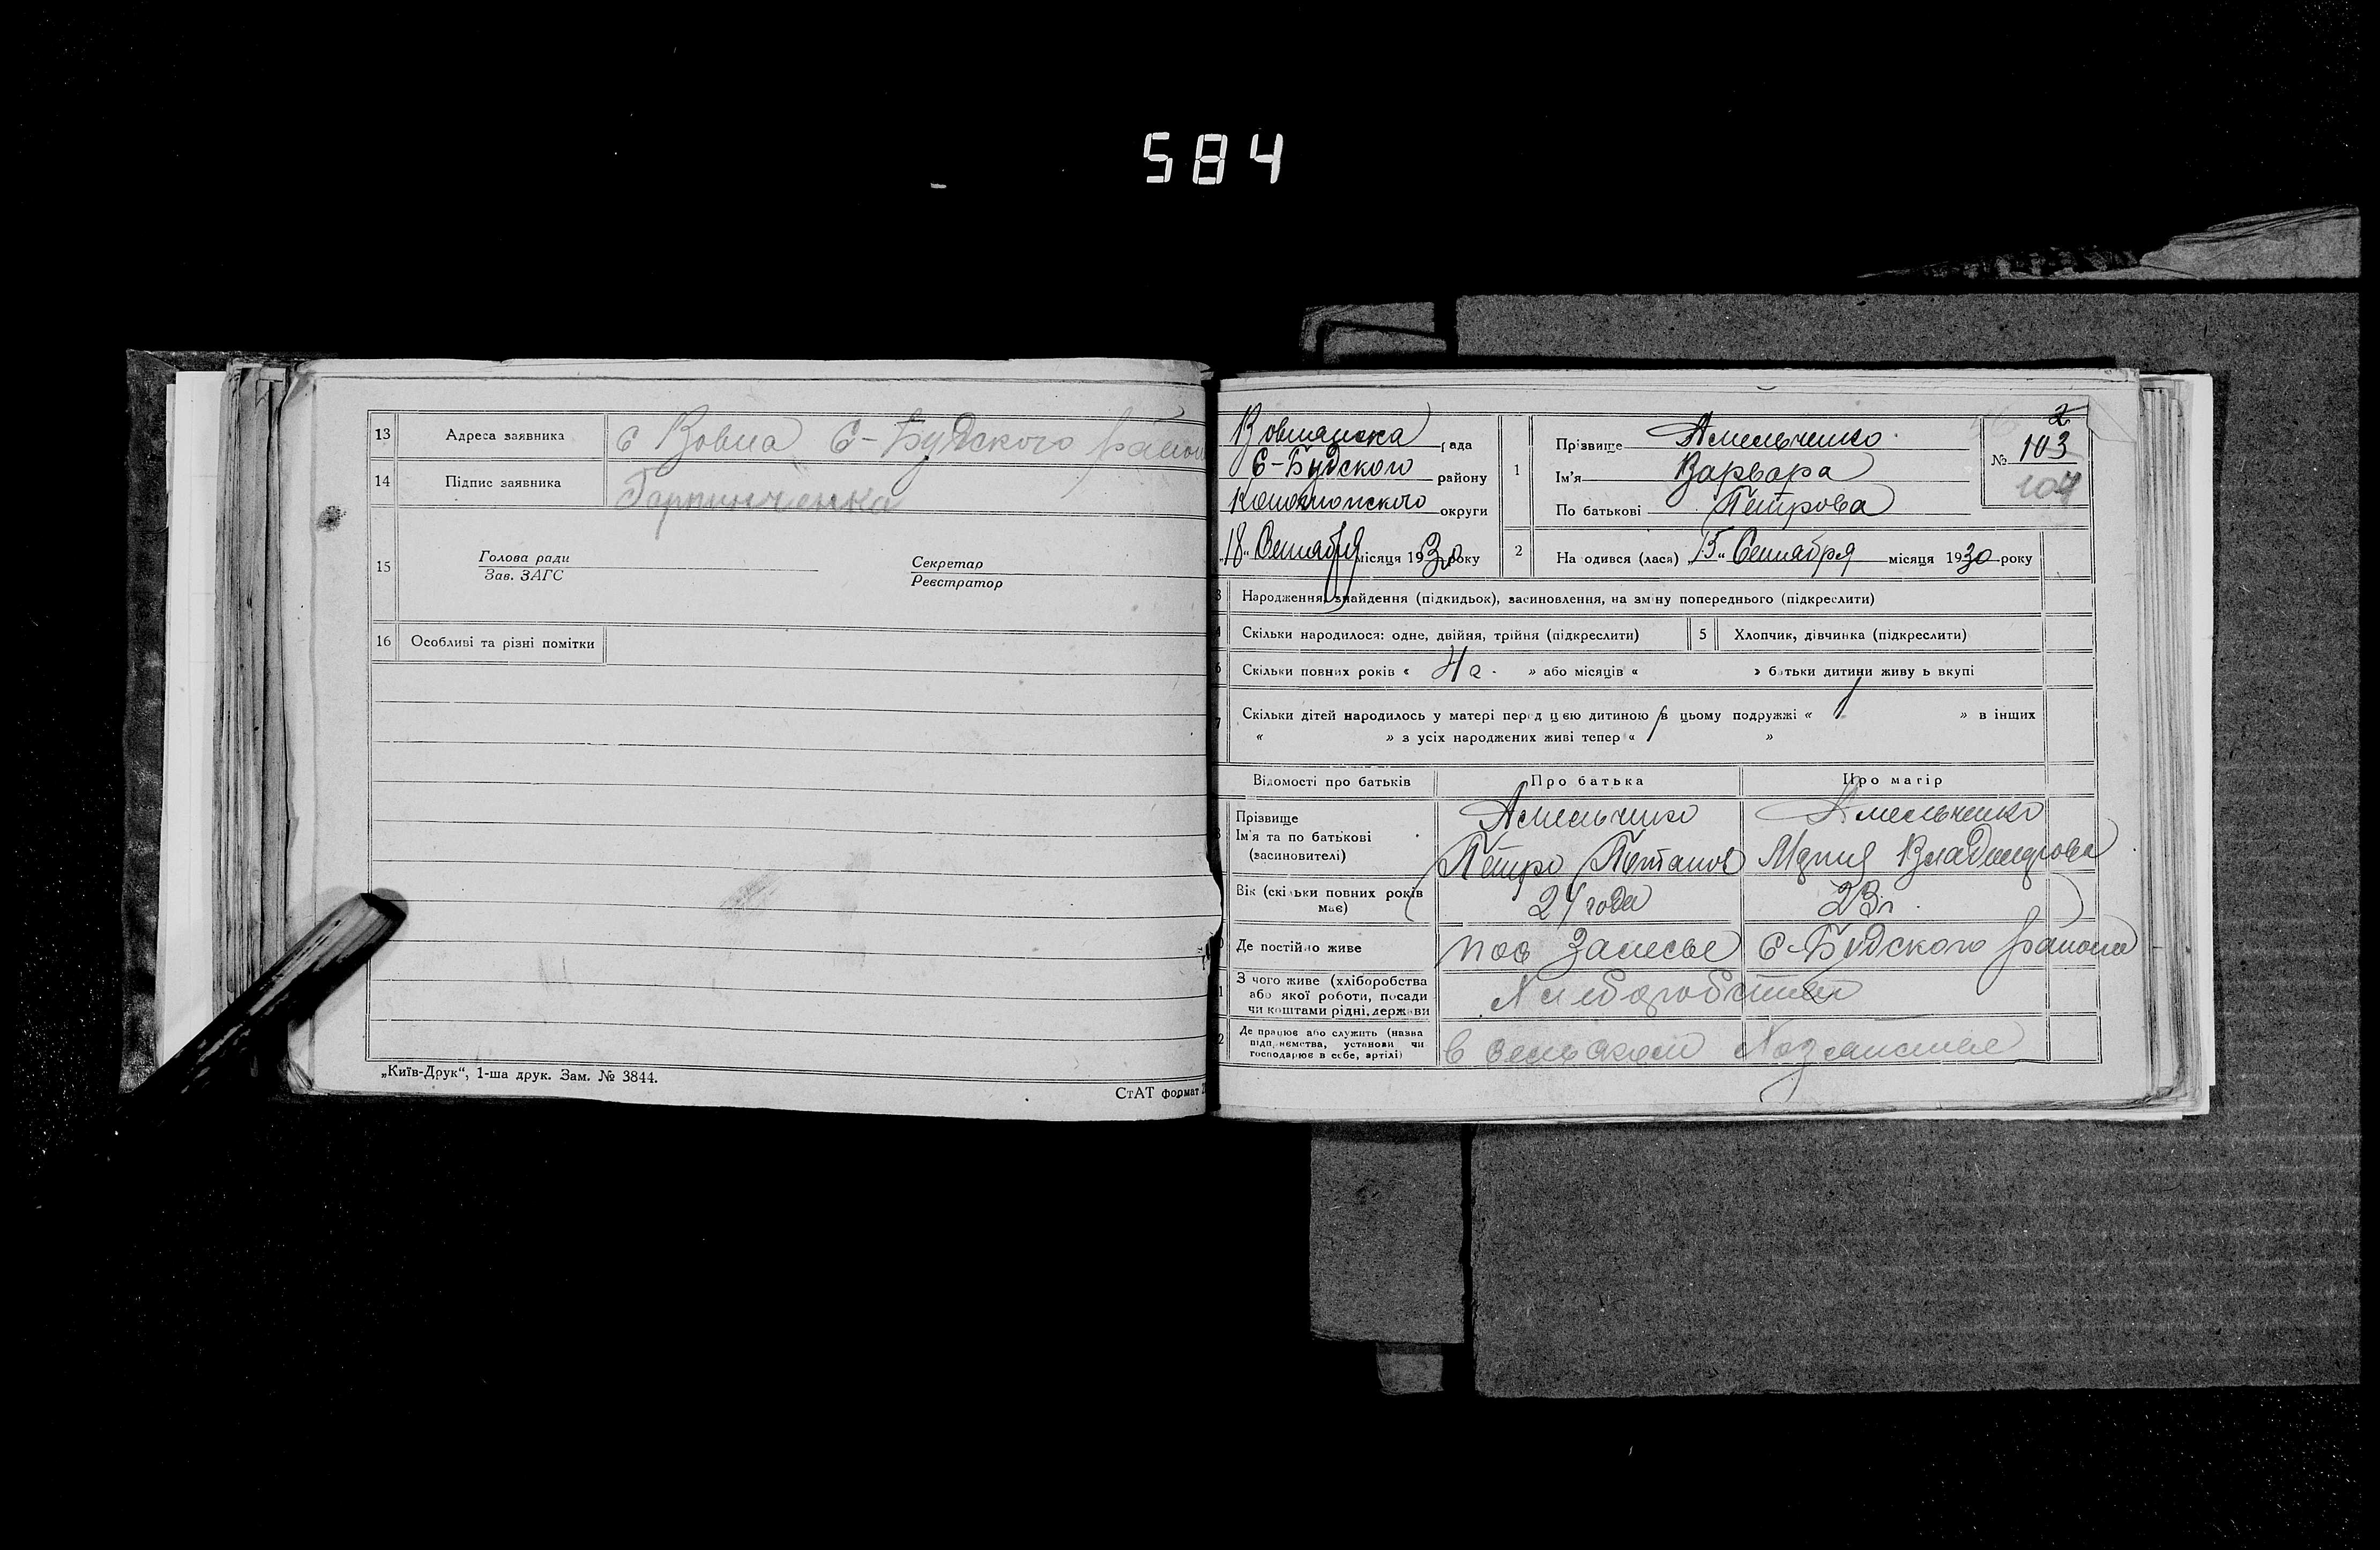 584
13 Адреса заявника с Вовна С-Будского район
14 Підпис заявника
15 Голова ради Секретар
Зав. ЗАГС Реєстратор
16 Особливі та різні помітки
„Київ-Друк“, 1-ша друк. Зам. № 3844.
СтАТ формат
рада
С-Будского району
Конотопского округи
„18“ Сентября місяця 1930 року
1 Прізвище Амельченко
Ім'я Варвара
По батькові Петрова
2
№ 103
104
2 На одився (лася) „15“ Сентября місяця 1930 року
Народження, знайдення (підкидьок), засиновлення, на зміну попереднього (підкреслити)
Скільки народилося: одне, двійня, трійня (підкреслити) 5 Хлопчик, дівчинка (підкреслити)
Скільки повних років « 4 г. » або місяців « » батьки дитини живу ь вкупі
Скільки дітей народилось у матері перед цією дитиною в цьому подружжі « 1 » в інших
« » з усіх народжених живі тепер « 1 »
Відомості про батьків Про батька Про матір
Прізвище Амельченко Амельченко
Ім'я та по батькові Петро Потапов Мария
(засиновителі)
Вік (скільки повних років має) 24 года 23 г.
Де постійно живе пос Залесье С-Будского района
З чого живе (хліборобства
або якої роботи, посади
чи коштами рідні, держави
Де працює або служить (назва
підприємства, установи чи
господарює в себе, артілі) в сельском